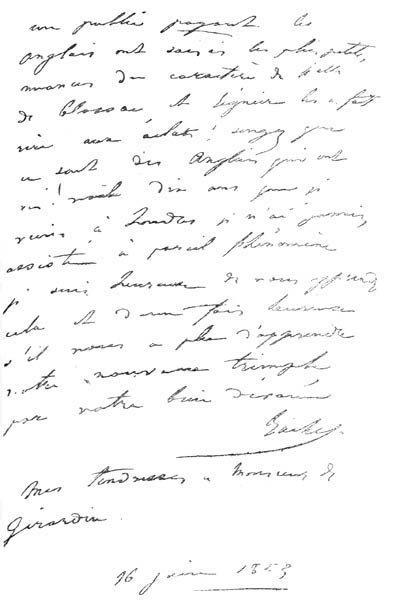 un public payant. les
Anglais ont saisis les plus petites
nuances du caractère de Melle
de Blossac et Régnier les a fait
rire aux éclats! songez que
ce sont des Anglais qui ont
ri! voilà dix ans que je
viens à Londres je n'ai jamais
assisté à pareil phénomène
je suis heureuse de vous apprendre
cela et deux fois heureuse
s'il vous a plu d'apprendre
votre nouveau triomphe
par votre bien dévouée
Rachel
mes tendresses à Monsieur de
Girardin.
16 juin 1853